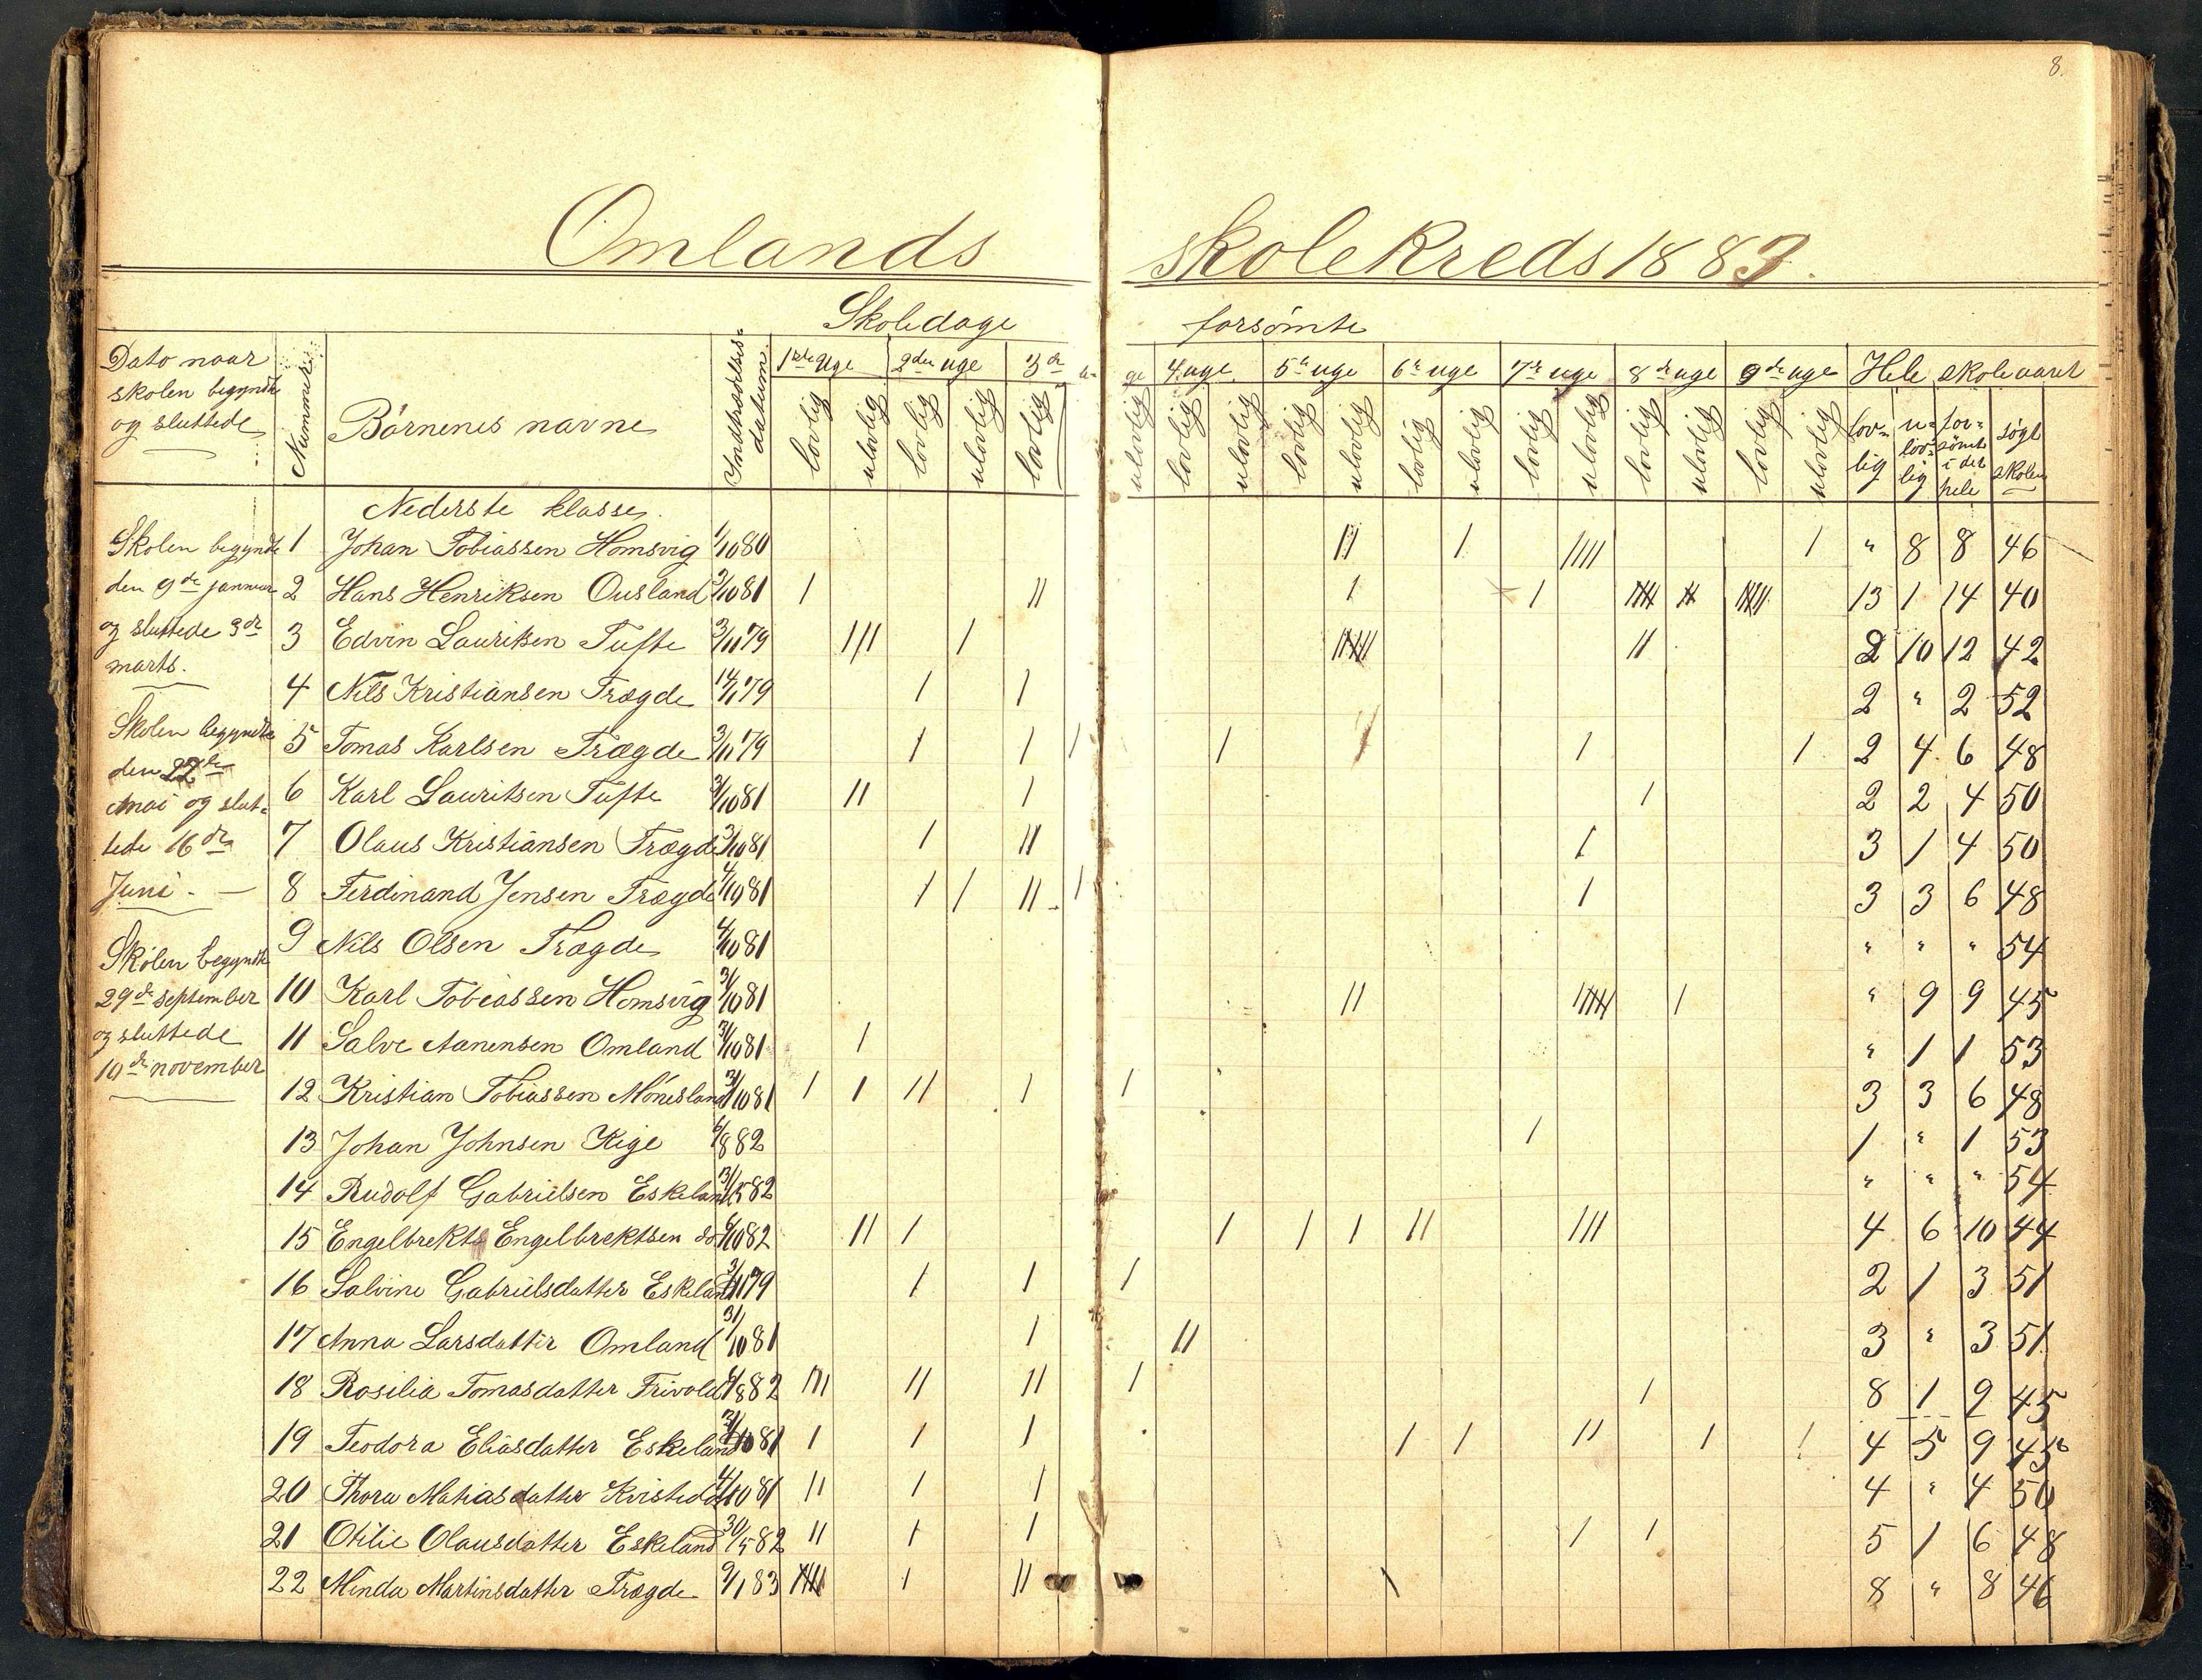 8.
Omlands skolekreds 1883.
Skoledage forsömte
Dato naar skolen begyndte og sluttede
Nummer
Börnenes navne
Indtrædelses= datum
1ste Uge 2den uge 3de uge 4 uge 5te uge 6te uge 7de uge 8de uge 9de uge Hele skoleaaret
lovlig ulovlig lovlig ulovlig lovlig ulovlig lovlig ulovlig lovlig ulovlig lovlig ulovlig lovlig ulovlig lovlig ulovlig lovlig ulovlig lov=lig u=lov=lig for=sömte i det hele søgt skolen
Nederste klasse.
Skolen begyndte
den 9de januar
og sluttede 3de
marts.
Skolen begyndte
den 22de
mai og slut=
tede 16de
Juni. —
Skolen begyndte
29de september
og sluttede
10de november
1 Johan Tobiassen Homsvig 1/10 80 II I IIII I " 8 8 46
2 Hans Henriksen Ousland 3/10 81 I II I I 13 1 14 40
3 Edvin Lauritsen Tufte 3/11 79 III I II 2 10 12 42
4 Nils Kristiansen Trægde 14/1 79 I I 2 " 2 52
5 Tomas Karlsen Trægde 3/11 79 I I I I I I 2 4 6 48
6 Karl Lauritsen Tufte 3/10 81 II I I 2 2 4 50
7 Olaus Kristiansen Trægde 3/10 81 I II I 3 1 4 50
8 Ferdinand Jensen Trægde 4/10 81 I I II I I 3 3 6 48
9 Nils Olsen Trægde 4/10 81 " " " 54
10 Karl Tobiassen Homsvig 31/10 81 II IIIII I " 9 9 45
11 Salve Aanensen Omland 31/10 81 I " 1 1 53
12 Kristian Tobiassen Mønesland 31/10 81 I I II I I 3 3 6 48
13 Johan Johnsen Kige 6/8 82 I 1 " 1 53
14 Rudolf Gabrielsen Eskeland 31/5 82 " " " 54
15 Engelbrekts Engelbrektsen do 6/10 82 II I I I I II III 4 6 10 44
16 Salvine Gabrielsdatter Eskeland 3/11 79 I I I 2 1 3 51
17 Anna Larsdatter Omland 31/10 81 I II 3 " 3 51
18 Rosilia Tomasdatter Frivold 4/8 82 III II II I I 8 1 9 45
19 Teodora Eliasdatter Eskeland 31/10 81 I I I I I II I I 4 5 9 45
20 Thora Matiasdatter 4/10 81 II I I 4 " 4 50
21 Otilie Olausdatter Eskeland 30/5 82 II I I I I 5 1 6 48
22 Minda Martinsdatter Trægde 9/1 83 IIII I II I 8 " 8 46